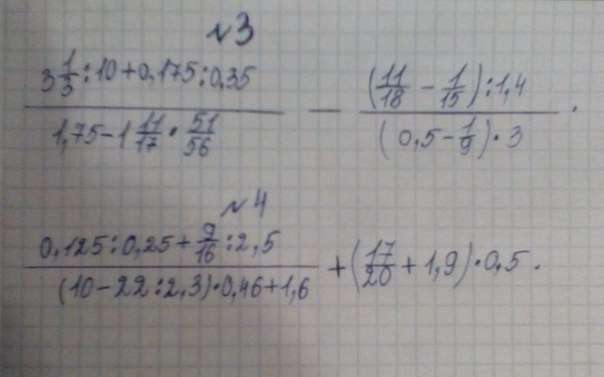 №3
3 1/3 : 10 + 0,175 : 0,35 / 1,75 - 1 11/17 · 51/56 — (11/18 - 1/15) : 1,4 / (0,5 - 1/9) · 3 .
№4
0,125 : 0,25 + 9/16 : 2,5 / (10 - 22 : 2,3) · 0,46 + 1,6 + (17/20 + 1,9) · 0,5 .